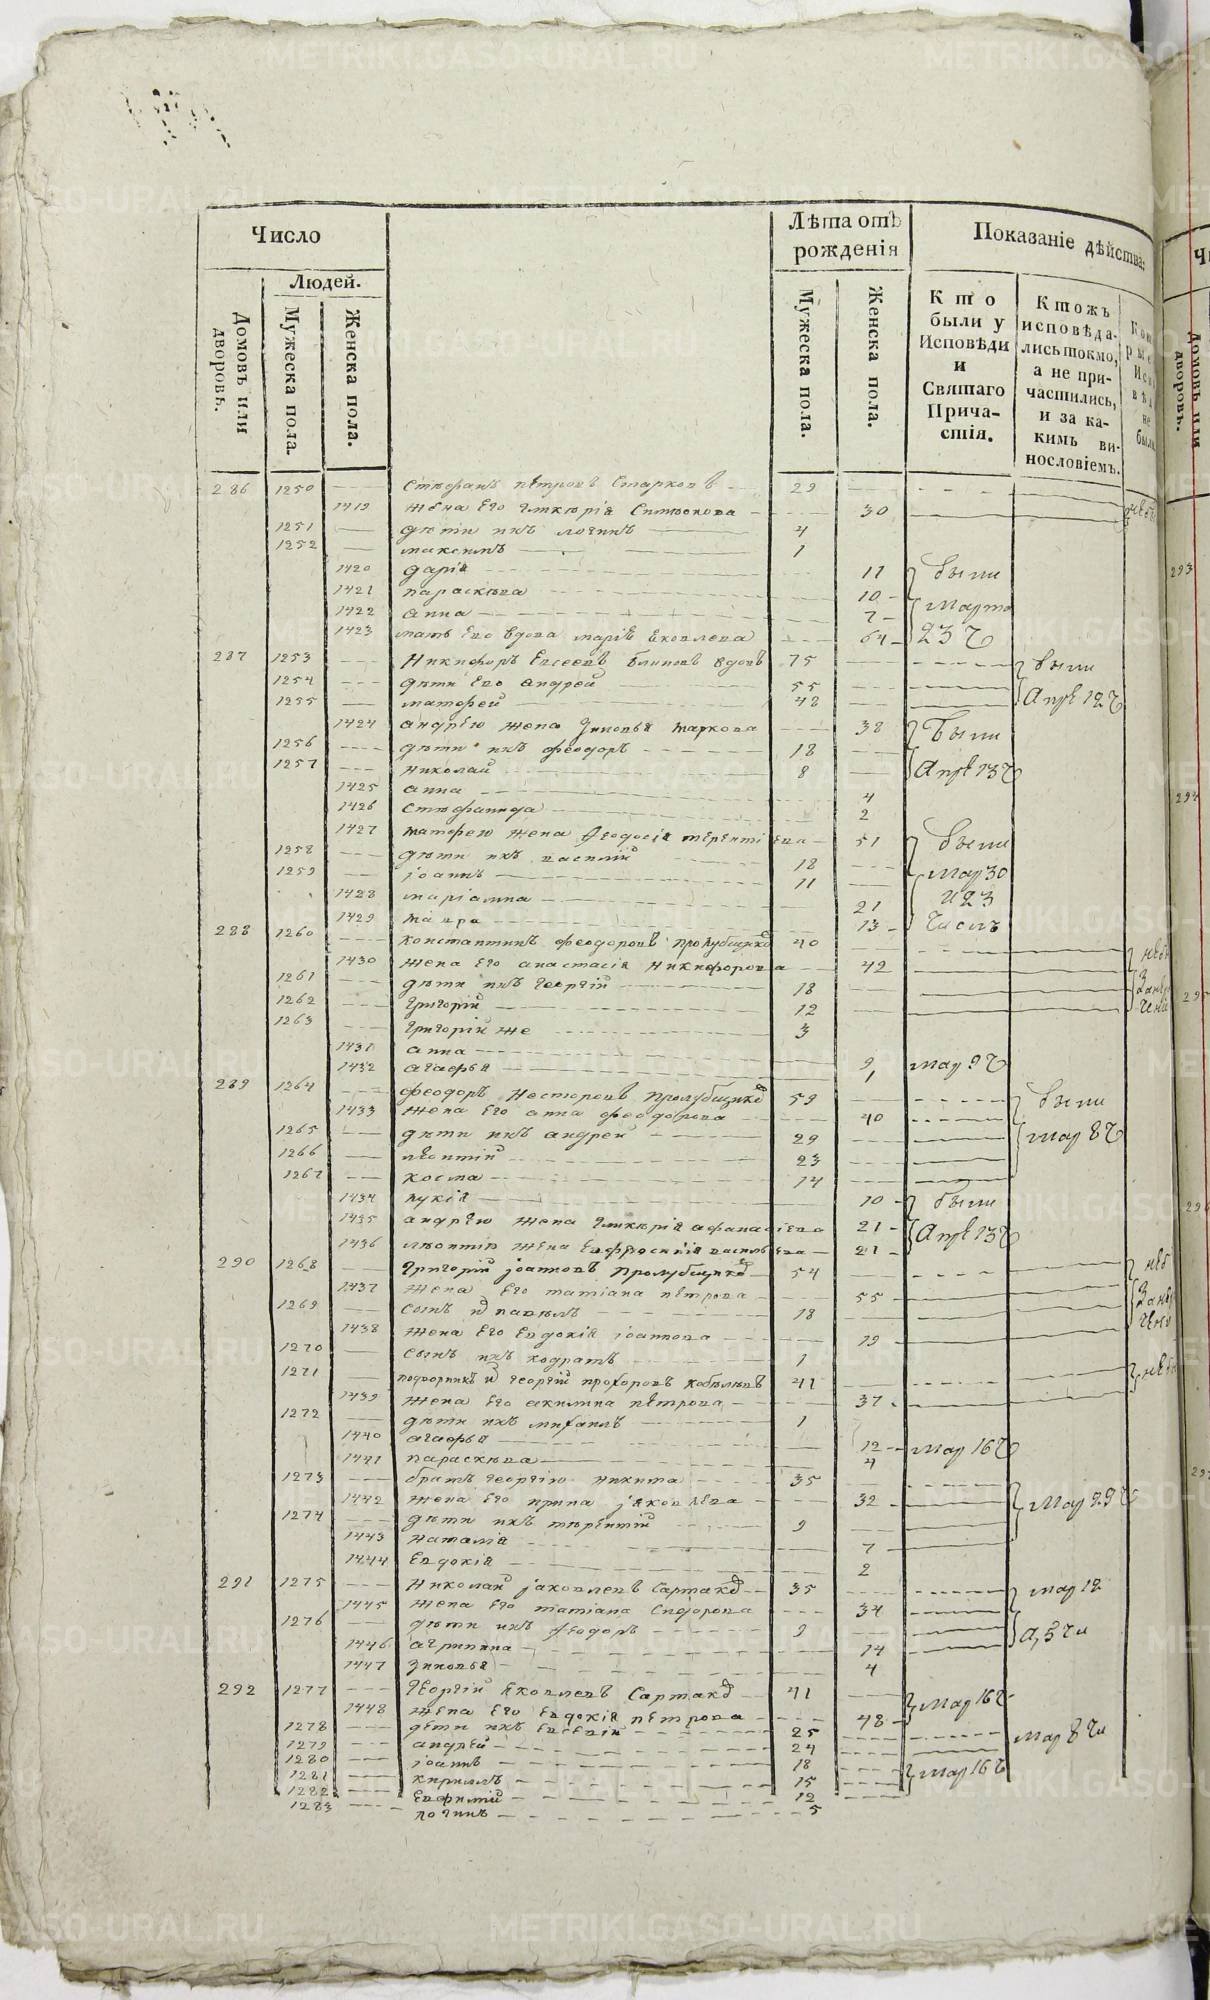 Число
Лѣта отъ рожденія
Показаніе дѣйства:
Людей.
Домовъ или дворовъ.
Мужеска пола.
Женска пола.
Мужеска пола.
Женска пола.
Кто были у Исповѣди и Святаго Причастія.
Ктожъ исповѣдались токмо, а не причастились, и за какимъ винословіемъ.
286 1250 Стефанъ петровъ Старковъ 29
1419 жена Его Гликерія Симеонова 30
1251 дѣти ихъ логинъ 4
1252 максимъ 1
1420 дарія 11 были
1421 параскева 10
1422 анна 7 марта
1423 мать Его вдова марія Яковлева 64 23 ч
287 1253 Никифоръ Евсеевъ Блиновъ вдовъ 75 были
1254 дѣти Его андрей 55
1255 матфей 48 Апр 12 ч
1424 андрею жена Зиновья маркова 38 Были
1256 дѣти ихъ феодоръ 18
1257 николай 8 Апр 13 ч
1425 анна 4
1426 Стефанида 2
1427 матфею жена Феодосія терентіева 51 были
1258 дѣти ихъ василій 18
1259 іоаннъ 11 мар 30
1428 маріамна 21 и 23
1429 мавра 13 числъ
288 1260 константинъ феодоровъ Пролубщиковъ 40
1430 жена Его анастасія Никифорова 42
1261 дѣти ихъ георгій 18
1262 григорій 12
1263 григорій же 3
1431 анна 9 мар 9 ч
1432 агафья 1
289 1264 феодоръ Несторовъ Пролубщиковъ 59 были
1433 жена Его анна феодорова 40
1265 дѣти ихъ андрей 29 мар 8 ч
1266 леонтій 23
1267 косма 14
1434 лукія 10 были
1435 андрею жена Гликерія афанасіева 21 Апр 13 ч
1436 леонтія жена Евфросинія васильева 21
290 1268 Григорій іоанновъ Пролубщиковъ 54
1437 жена Его татіана петрова 55
1269 сынъ их павелъ 18
1438 жена Его Евдокія іоаннова 19
1270 сынъ ихъ кодратъ 1
1271 подворникъ их георгій прохоровъ кобелевъ 41
1439 жена Его акилина петрова 37
1272 дѣти ихъ михаилъ 1
1440 агафья 12 мар 16 ч
1441 параскева 4
1273 братъ георгію никита 35
1442 жена Его ирина Іяковлева 32 мар 29 ч
1274 дѣти ихъ терентій 9
1443 наталія 7
1444 Евдокія 2
291 1275 николай јаковлевъ Сартаковъ 35 мар 12
1445 жена Его татіана Сидорова 34
1276 дѣти ихъ Феодоръ 9
1446 агрипина 14
1447 Зиновья 4
292 1277 георгій Яковлевъ Сартаковъ 41 мар 16 ч
1448 жена Его Евдокія петрова 48
1278 дѣти ихъ Евсевій 25 мар 8 чи
1279 андрей 24
1280 іоаннъ 18 мар 16 ч
1281 кириллъ 15
1282 Евфимій 12
1283 логинъ 5
293
294
METRIKI.GASO-URAL.RU